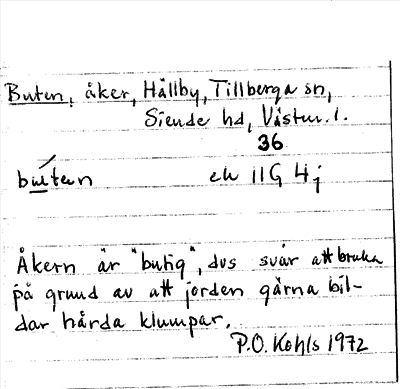 Buten, åker, Hällby, Tillberga sn,
Siende hd, Västm. l.
36
búten ek 11G 4j
Åkern är "butig", dvs svår att bruka
på grund av att jorden gärna bil-
dar hårda klumpar.
P.O. Kohls 1972